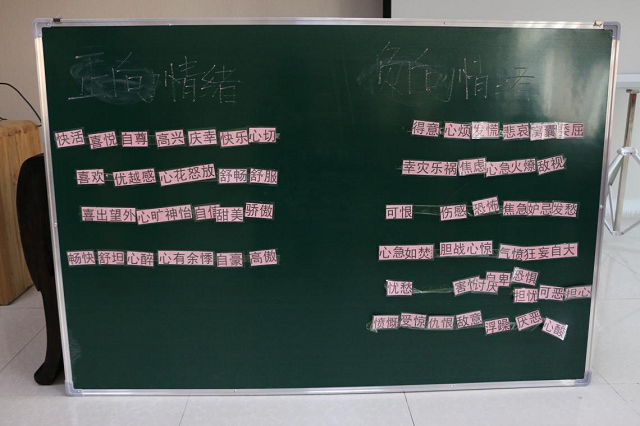 正向情绪
快活 喜悦 自尊 高兴 庆幸 快乐 心切
喜欢 优越感 心花怒放 舒畅 舒服
喜出望外 心旷神怡 甜美 骄傲
畅快 舒坦 心醉 心有余悸 自豪 高傲
负向情绪
得意 心烦 发慌 悲哀 委屈
幸灾乐祸 焦虑 心急火燎 敌视
可恨 伤感 恐怖 焦急 妒忌 发愁
心急如焚 胆战心惊 气愤 狂妄自大
忧愁 害怕 讨厌 自卑 恐惧 担忧 可恶 担心
愤慨 受惊 仇恨 敌意 浮躁 厌恶 心酸